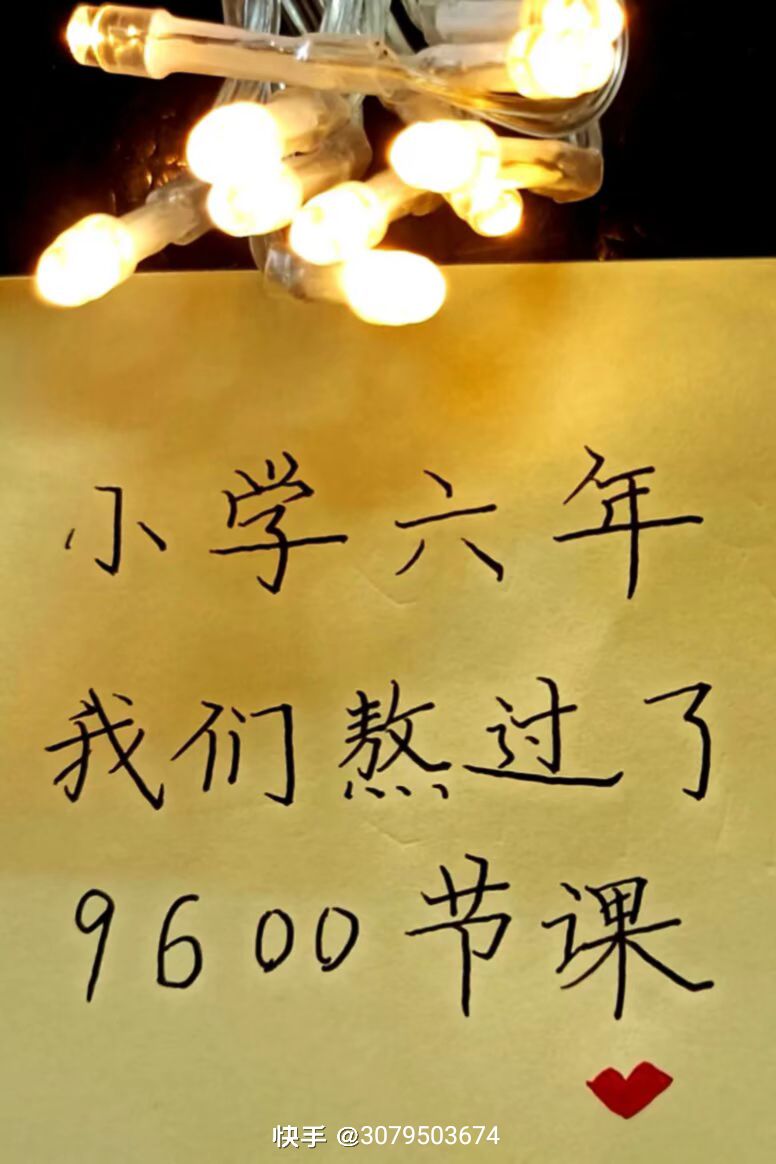 小学六年
我们熬过了
9600节课
快手 @3079503674